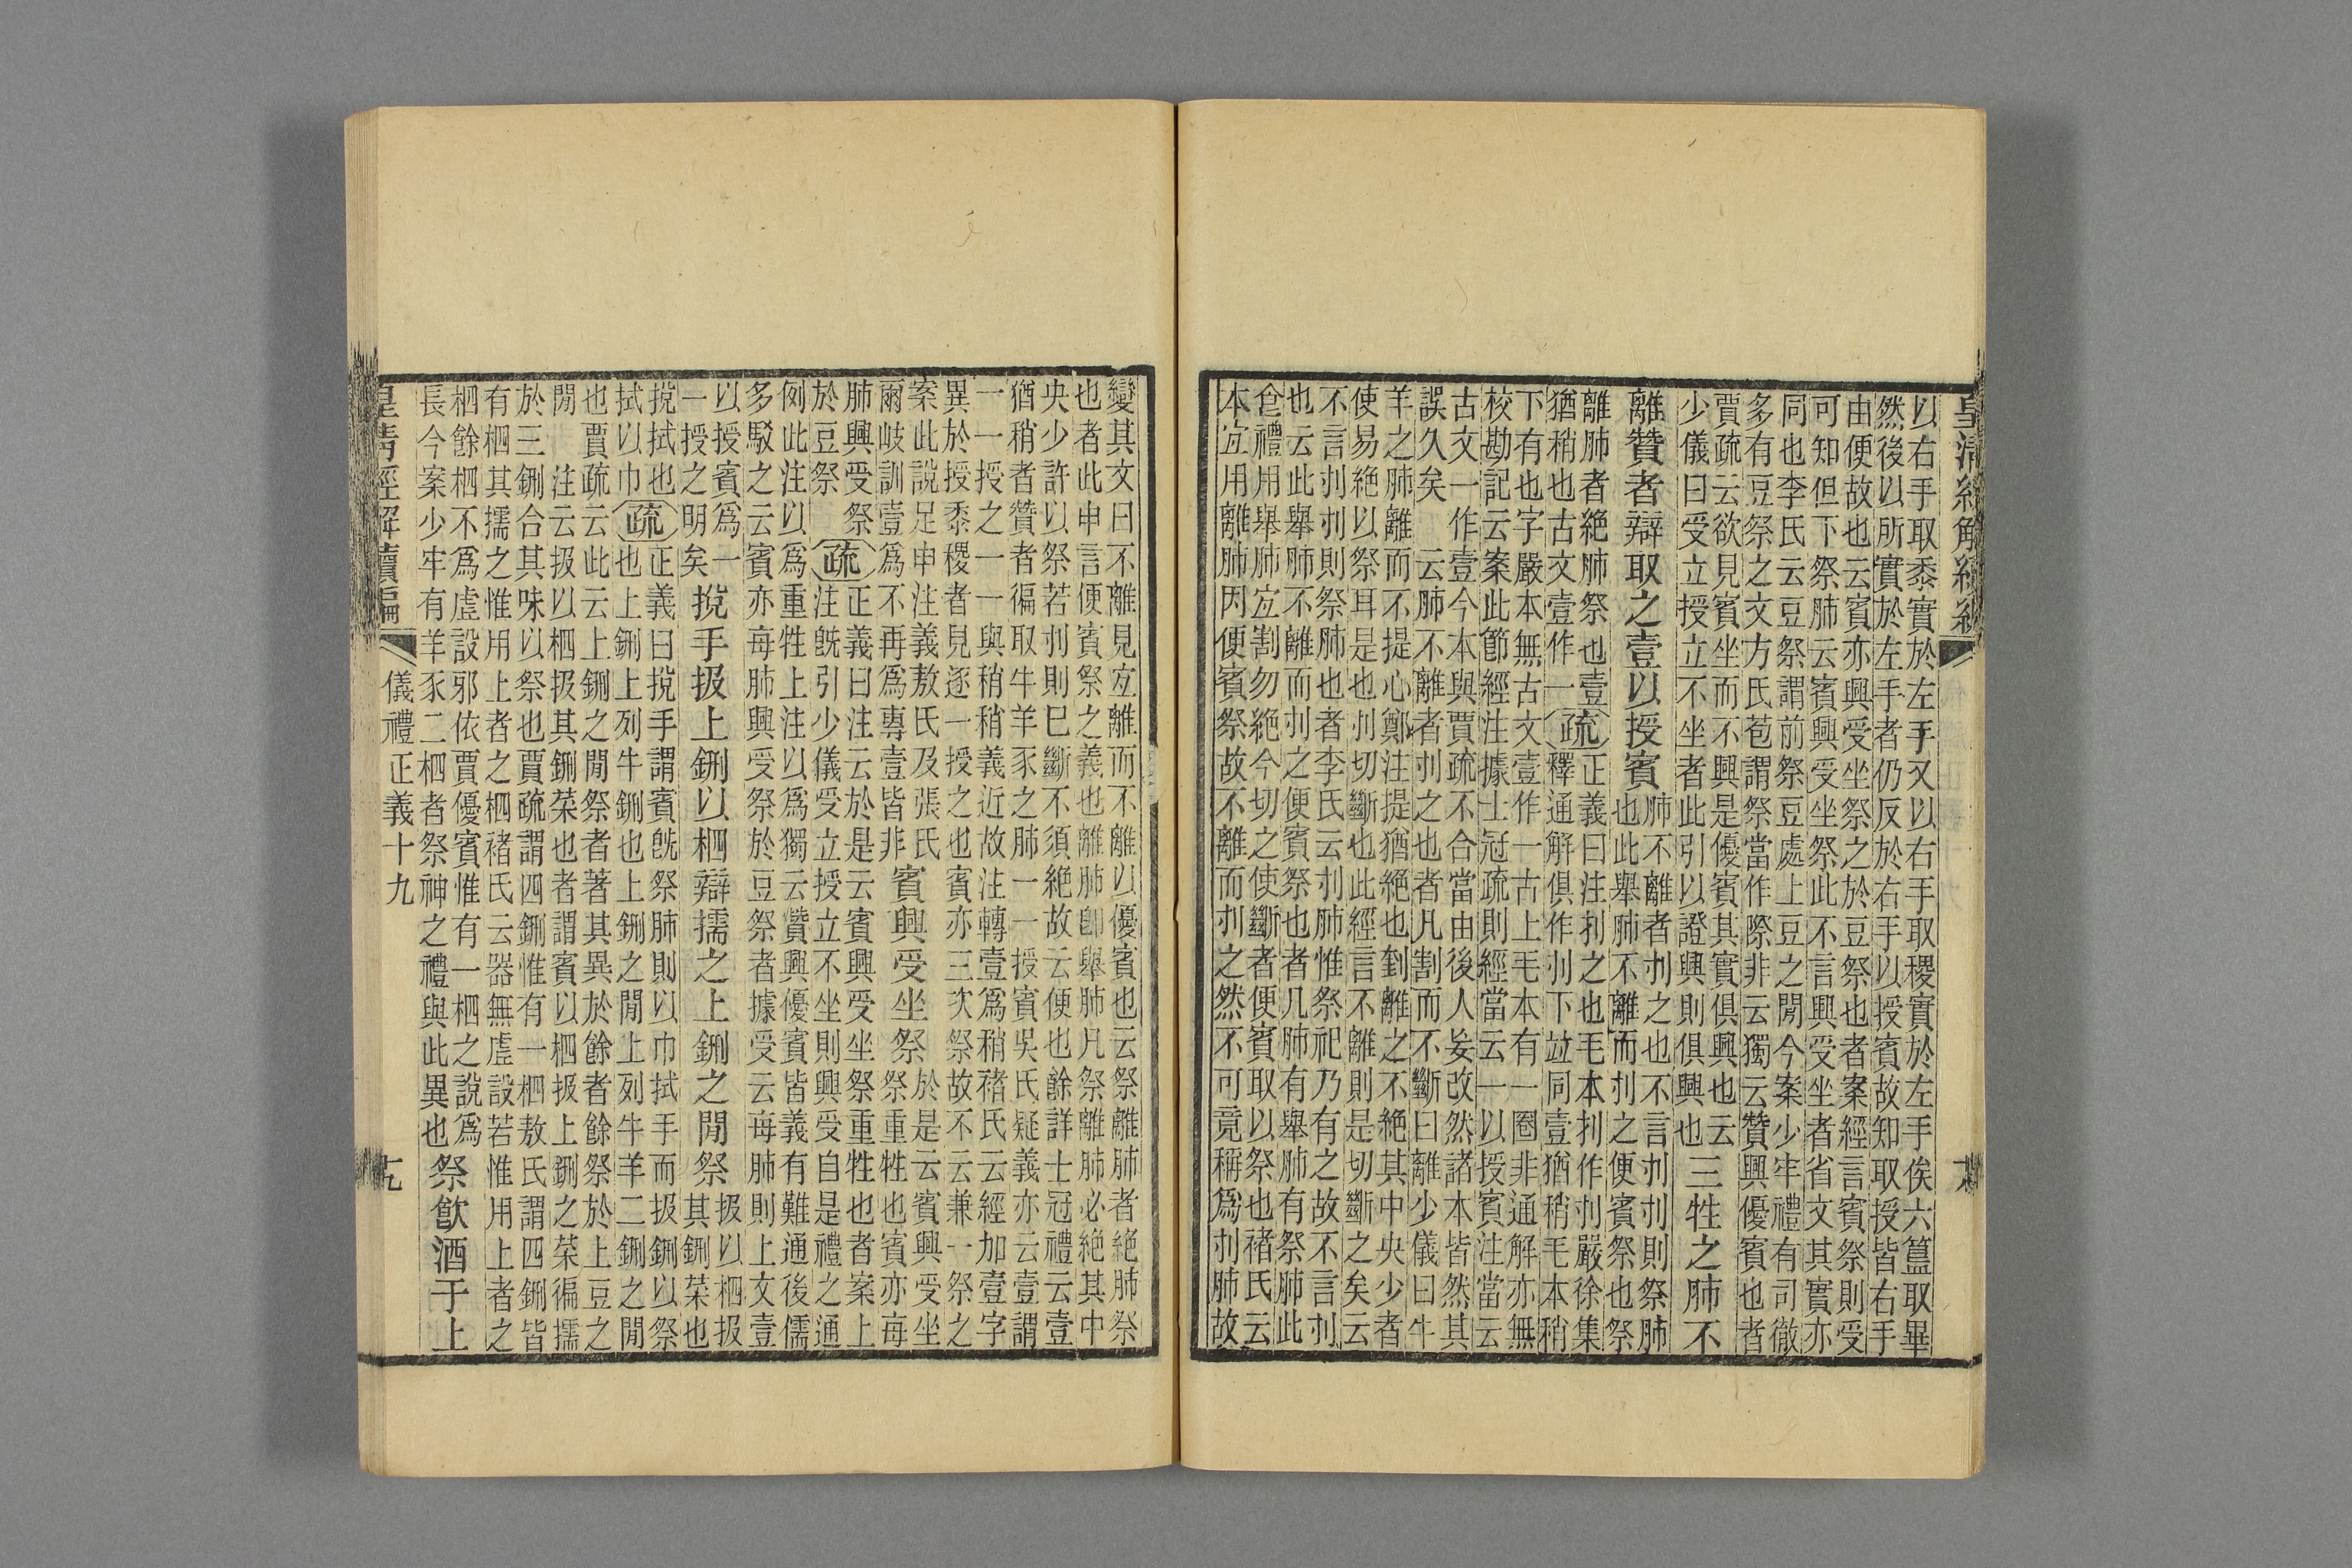 皇清經解續編
以右手取黍實於左手又以右手取稷實於左手俟六簋取畢
然後以所實於左手者仍反於右手以授賓故知取授皆右手
由便故也云賓亦興受坐祭之於豆祭也者案經言賓祭則受
可知但下祭肺云賓興受坐祭此不言興受坐者省文其實亦
同也李氏云豆祭謂前祭豆處上豆之閒今案少牢禮有司徹
多有豆祭之文方氏苞謂祭當作際非云獨云贊興優賓也者
賈疏云欲見賓坐而不興是優賓其實俱興也云
少儀曰受立授立不坐者此引以證興則俱興也三牲之肺不
離贊者辯取之壹以授賓肺不離者刌之也不言刌刌則祭肺
也此舉肺不離而刌之便賓祭也祭
離肺者絶肺祭也壹疏正義曰注刌之也毛本刌作刌嚴徐集
猶稍也古文壹作一釋通解俱作刌下竝同壹猶稍毛本稍
下有也字嚴本無古文壹作一古上毛本有一圈非通解亦無
校勘記云案此節經注據士冠疏則經當云一以授賓注當云
古文一作壹今本與賈疏不合當由後人妄改然諸本皆然其
誤久矣云肺不離者刌之也者凡割而不斷曰離少儀曰牛
羊之肺離而不提心鄭注提猶絶也到離之不絶其中央少者
使易絶以祭耳是也刌切斷也此經言不離則是切斷之矣云
不言刌刌則祭肺也者李氏云刌肺惟祭祀乃有之故不言刌
也云此舉肺不離而刌之便賓祭也者凡肺有舉肺有祭肺此
食禮用舉肺宜割勿絶今切之使斷者便賓取以祭也褚氏云
本宜用離肺因便賓祭故不離而刌之然不可竟稱爲刌肺故
變其文曰不離見宜離而不離以優賓也云祭離肺者絶肺祭
也者此申言便賓祭之義也離肺卽舉肺凡祭離肺必絶其中
央少許以祭若刌則已斷不須絶故云便也餘詳士冠禮云壹
猶稍者贊者徧取牛羊豕之肺一一授賓吳氏疑義亦云壹謂
一一授之一一與稍稍義近故注轉壹爲稍褚氏云經加壹字
異於授黍稷者見逐一授之也賓亦三次祭故不云兼一祭之
案此說足申注義敖氏及張氏
爾岐訓壹爲不再爲專壹皆非賓興受坐祭於是云賓興受坐
祭重牲也賓亦每
肺興受祭疏正義曰注云於是云賓興受坐祭重牲也者案上
於豆祭注旣引少儀受立授立不坐則興受自是禮之通
例此注以爲重牲上注以爲獨云贊興優賓皆義有難通後儒
多駁之云賓亦每肺興受祭於豆祭者據受云每肺則上文壹
以授賓爲一
一授之明矣挩手扱上鉶以柶辯擩之上鉶之閒祭扱以柶扱
其鉶菜也
挩拭也疏正義曰挩手謂賓旣祭肺則以巾拭手而扱鉶以祭
拭以巾也上鉶上列牛鉶也上鉶之閒上列牛羊二鉶之閒
也賈疏云此云上鉶之閒祭者著其異於餘者餘祭於上豆之
閒注云扱以柶扱其鉶菜也者謂賓以柶扱上鉶之菜徧擩
於三鉶合其味以祭也賈疏謂四鉶惟有一柶敖氏謂四鉶皆
有柶其擩之惟用上者之柶褚氏云器無虛設若惟用上者之
柶餘柶不爲虛設邪依賈優賓惟有一柶之說爲
長今案少牢有羊豕二柶者祭神之禮與此異也祭飲酒于上
皇清經解續編 儀禮正義十九